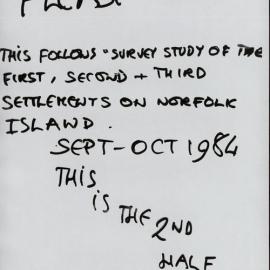 THIS FOLLOWS "SURVEY STUDY OF THE
FIRST, SECOND + THIRD
SETTLEMENTS ON NORFOLK
ISLAND.
SEPT-OCT 1984
THIS
IS
THE
2ND
HALF